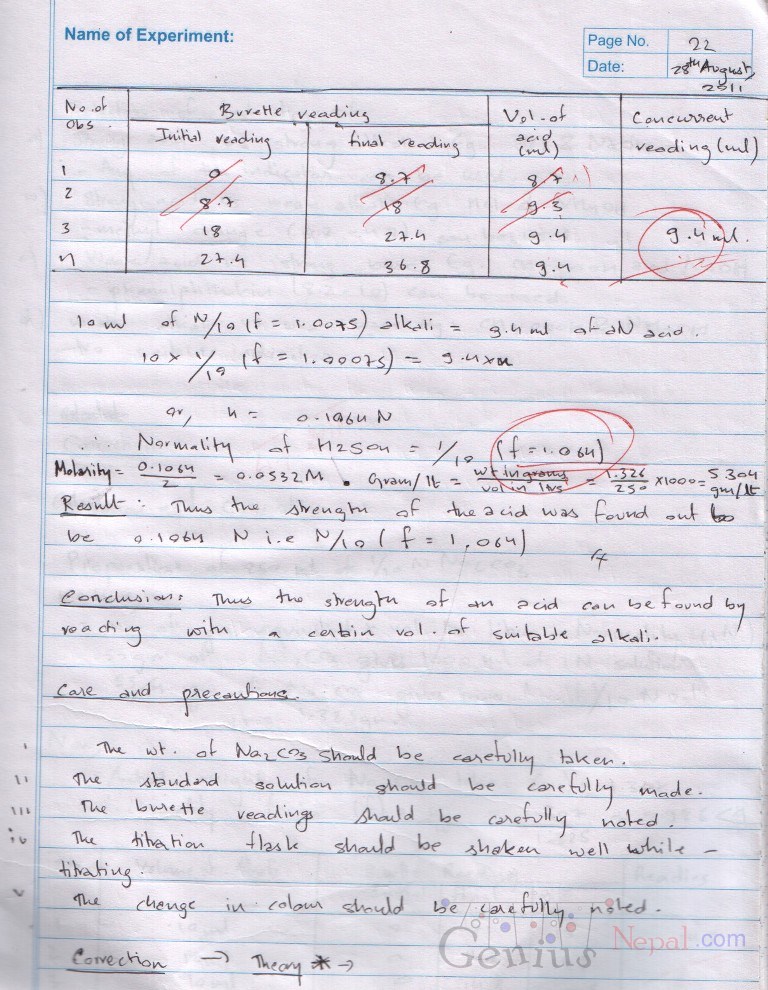 Name of Experiment:
Page No. 22
Date: 28th August, 2011
No. of Obs. Burette reading Vol. of acid (ml) Concurrent reading (ml)
Initial reading final reading
1 0 8.7 8.7
2 8.7 18 9.3
3 18 27.4 9.4 9.4 ml.
4 27.4 36.8 9.4
10 ml of N/10 (f = 1.0075) alkali = 9.4 ml of xN acid.
10 x 1/10 (f = 1.00075) = 9.4 x x
or, x = 0.1064 N
∴ Normality of H2SO4 = 1/10 (f = 1.064)
Molarity = 0.1064/2 = 0.0532 M . Gram/lt = wt in grams/vol in ltrs = 1.326/250 x 1000 = 5.304 gm/lt
Result: Thus the strength of the acid was found out to
be 0.1064 N i.e N/10 (f = 1.064)
Conclusion: Thus the strength of an acid can be found by
reacting with a certain vol. of suitable alkali.
Care and precautions.
i The wt. of Na2CO3 should be carefully taken.
ii The standard solution should be carefully made.
iii The burette readings should be carefully noted.
iv The titration flask should be shaken well while -
titrating.
v The change in colour should be carefully noted.
Correction → Theory * →
Genius Nepal.com